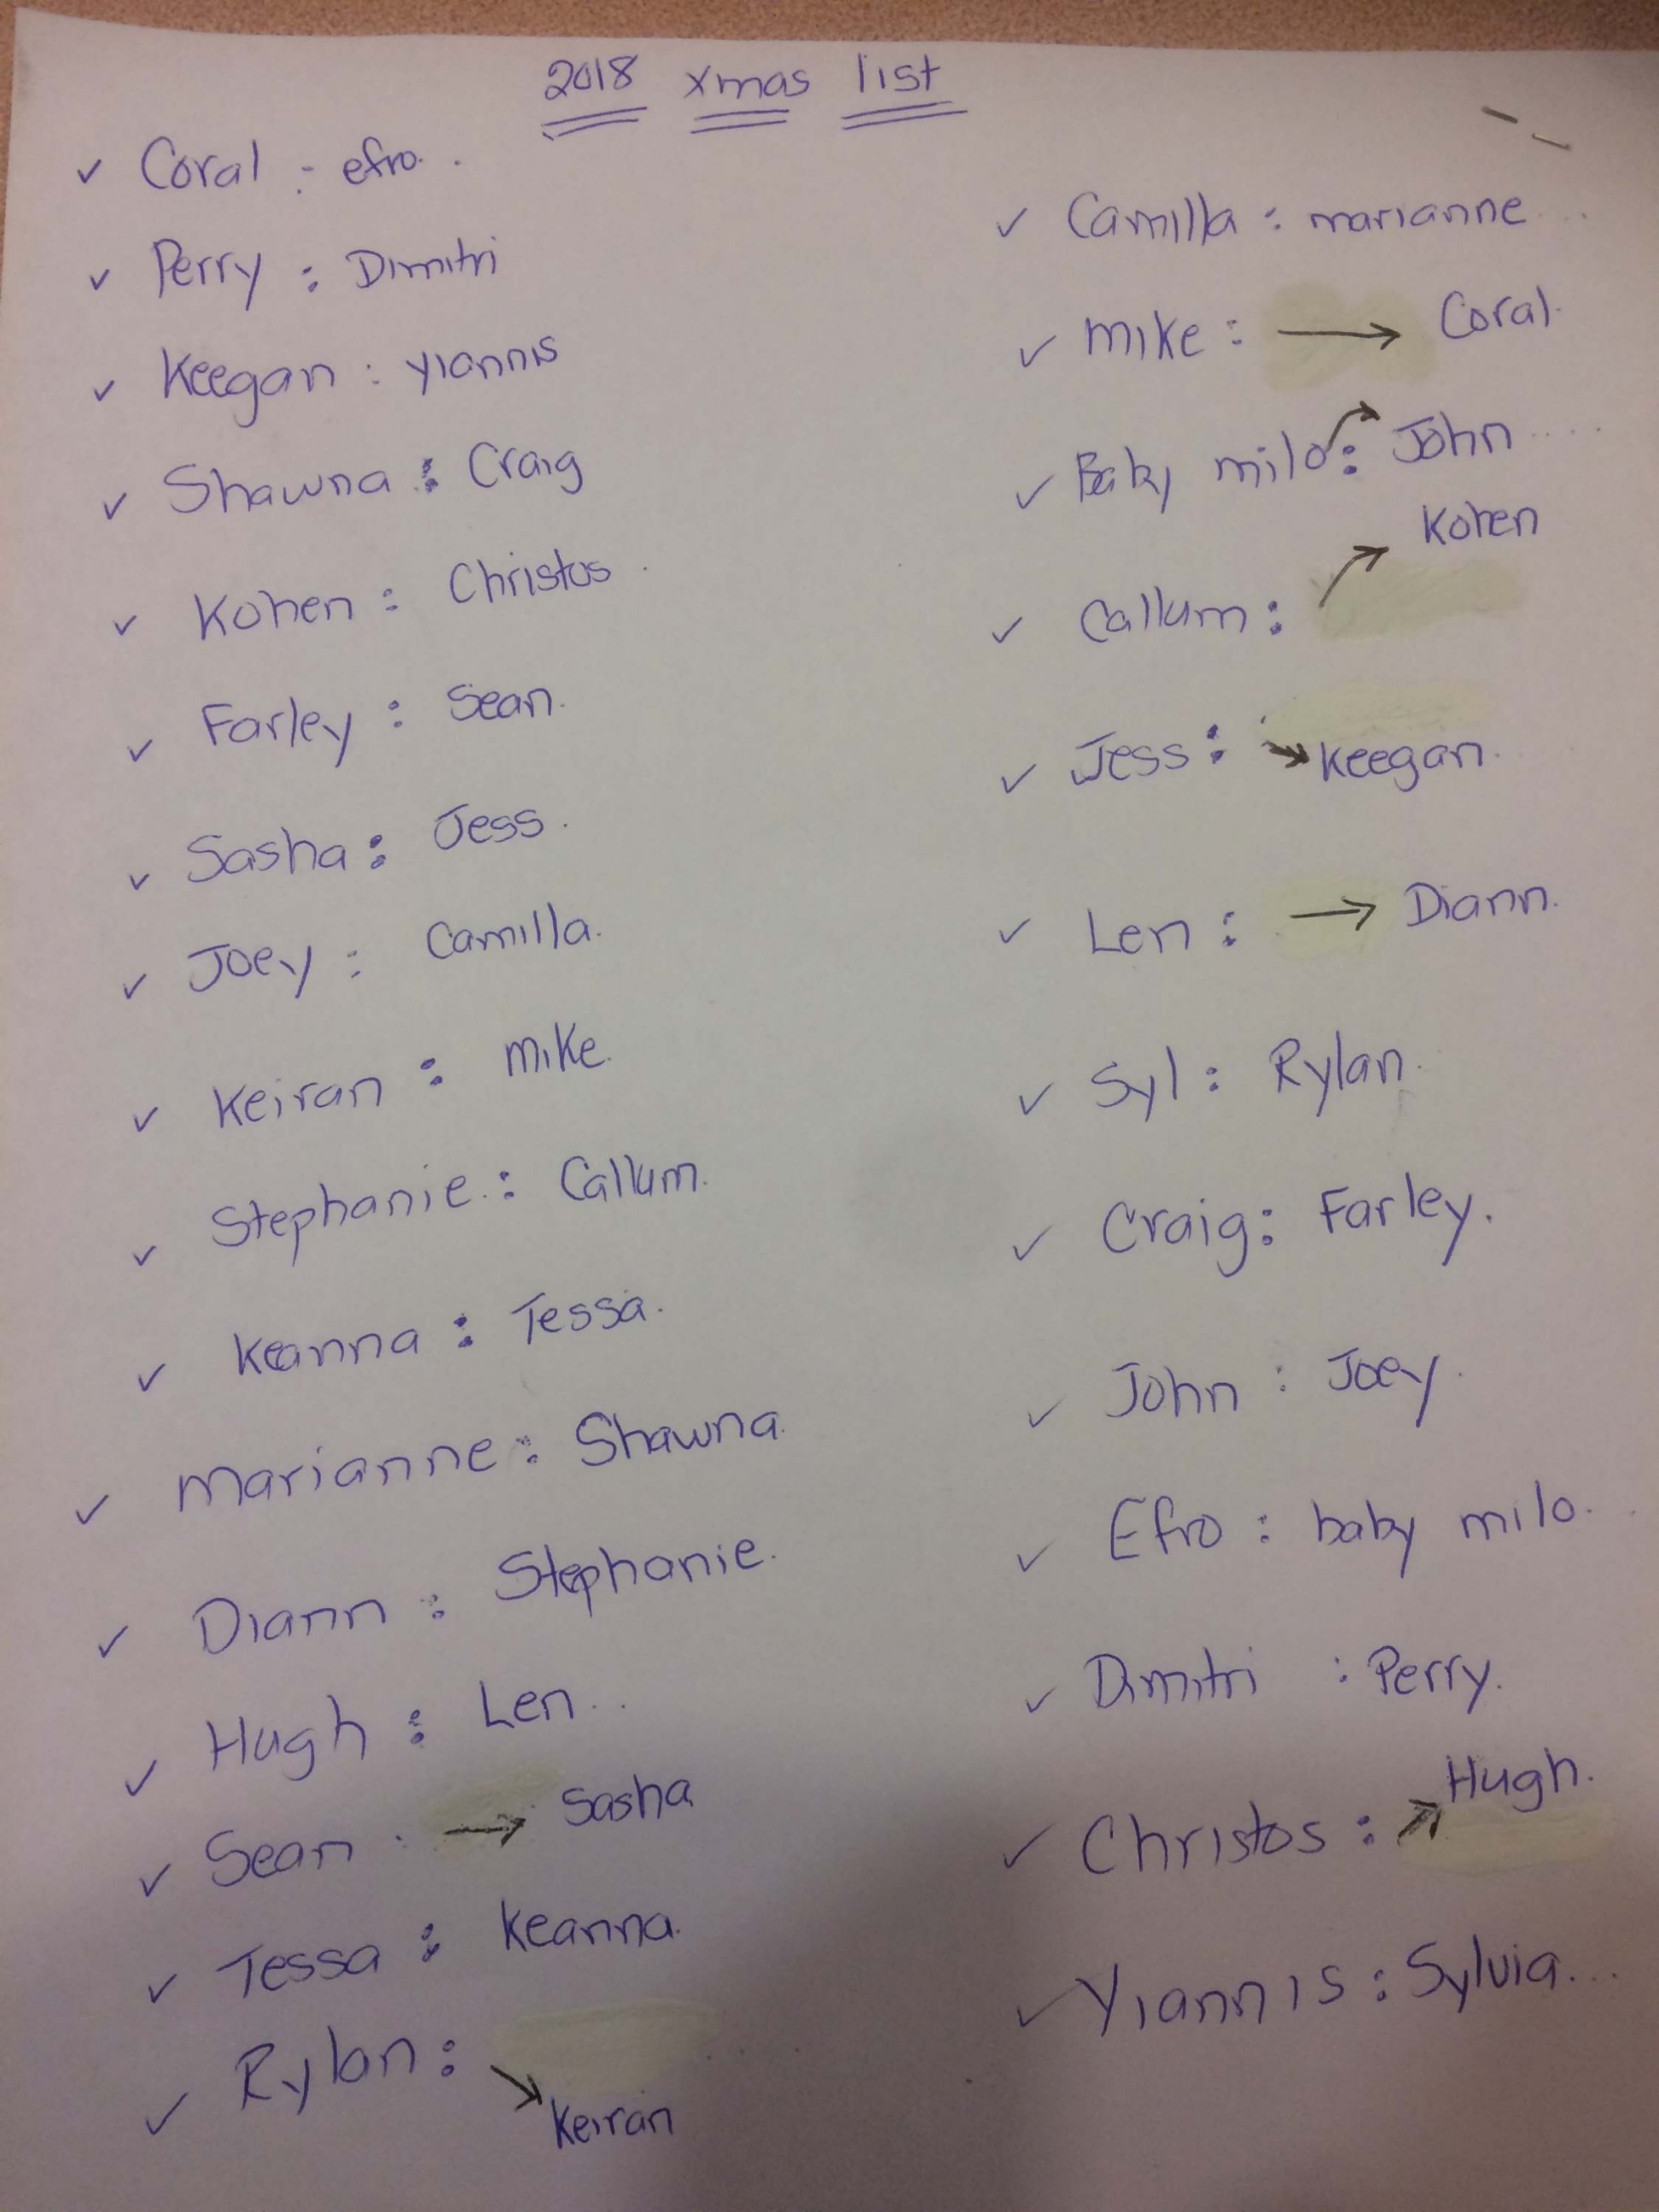 2018 xmas list
✓ Coral : efro.
✓ Perry : Dimitri
✓ Keegan : Yiannis
✓ Shawna : Craig
✓ Kohen : Christos
✓ Farley : Sean.
✓ Sasha : Jess.
✓ Joey : Camilla.
✓ Keiran : mike.
✓ Stephanie : Callum.
✓ Keanna : Tessa.
✓ Marianne : Shawna.
✓ Diann : Stephanie.
✓ Hugh : Len..
✓ Sean : → Sasha
✓ Tessa : Keanna.
✓ Rylan : ↘
Keiran
✓ Camilla : marianne...
✓ mike : → Coral.
✓ Baby milo : → John....
Kohen
✓ Callum : ↗
✓ Jess : ↘ Keegan.
✓ Len : → Diann.
✓ Syl : Rylan.
✓ Craig : Farley.
✓ John : Joey.
✓ Efro : baby milo.
✓ Dimitri : Perry.
✓ Christos : ↗ Hugh.
✓ Yiannis : Sylvia...